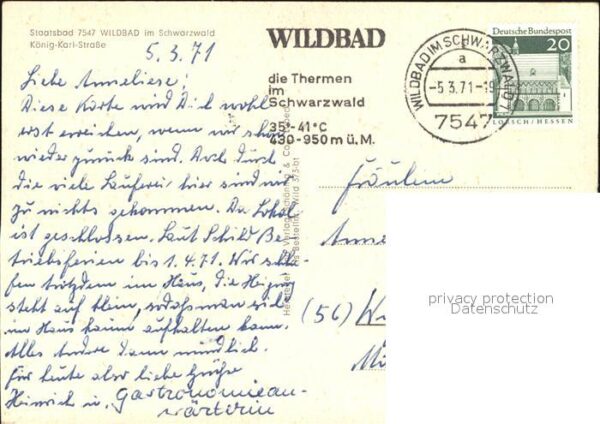 Staatsbad 7547 WILDBAD im Schwarzwald
König-Karl-Straße
5.3.71
WILDBAD
die Thermen
im
Schwarzwald
35°-41°C
430-950 m ü.M.
WILDBAD IM SCHWARZWALD 1
a
-5.3.71-19
7547
Deutsche Bundespost
20
LORSCH/HESSEN
Liebe Anneliese!
Diese Karte wird Dich wohl
erst erreichen, wenn wir schon
wieder zurück sind. Doch durch
die viele Lauferei hier sind wir
zu nichts gekommen. Das Lokal
ist geschlossen. Laut Schild Be-
triebsferien bis 1.4.71. Wir schla-
fen trotzdem im Haus, die Heizung
steht auf klein, sodass man sich
im Haus kaum aufhalten kann.
Alles andere dann mündlich.
Für heute aber liebe Grüße
Heinrich u. Gastronomiean-
wärterin
Fräulein
Anne
(56) W
privacy protection
Datenschutz